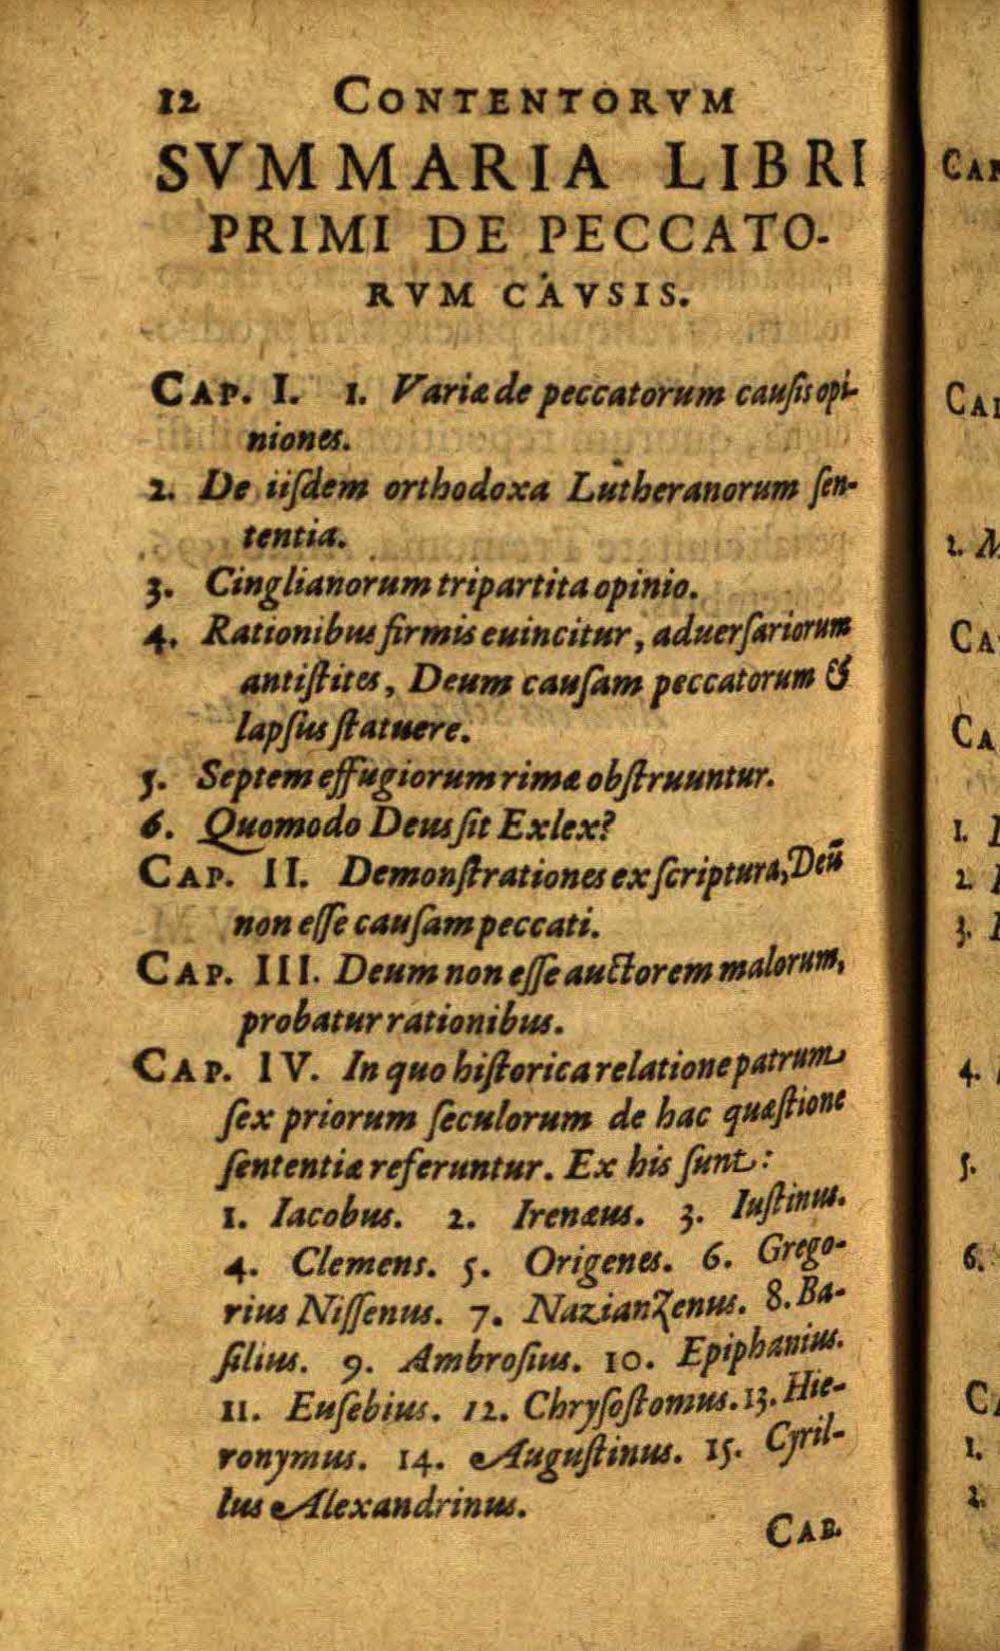 12 CONTENTORVM
SVMMARIA LIBRI
PRIMI DE PECCATO-
RVM CAVSIS.
CAP. I. 1. Variæ de peccatorum cauſis opi-
niones.
2. De iiſdem orthodoxa Lutheranorum ſen-
tentia.
3. Cinglianorum tripartita opinio.
4. Rationibus firmis euincitur, aduerſariorum
antiſtites, Deum cauſam peccatorum &
lapſus ſtatuere.
5. Septem effugiorum rimæ obſtruuntur.
6. Quomodo Deus ſit Exlex?
CAP. II. Demonſtrationes ex ſcriptura, Deũ
non eſſe cauſam peccati.
CAP. III. Deum non eſſe auctorem malorum,
probatur rationibus.
CAP. IV. In quo hiſtorica relatione patrum
ſex priorum ſeculorum de hac quæſtione
ſententiæ referuntur. Ex his ſunt:
1. Iacobus. 2. Irenæus. 3. Iuſtinus.
4. Clemens. 5. Origenes. 6. Grego-
rius Niſſenus. 7. Nazianzenus. 8. Ba-
ſilius. 9. Ambroſius. 10. Epiphanius.
11. Euſebius. 12. Chryſoſtomus. 13. Hie-
ronymus. 14. Auguſtinus. 15. Cyril-
lus Alexandrinus.
CAP.